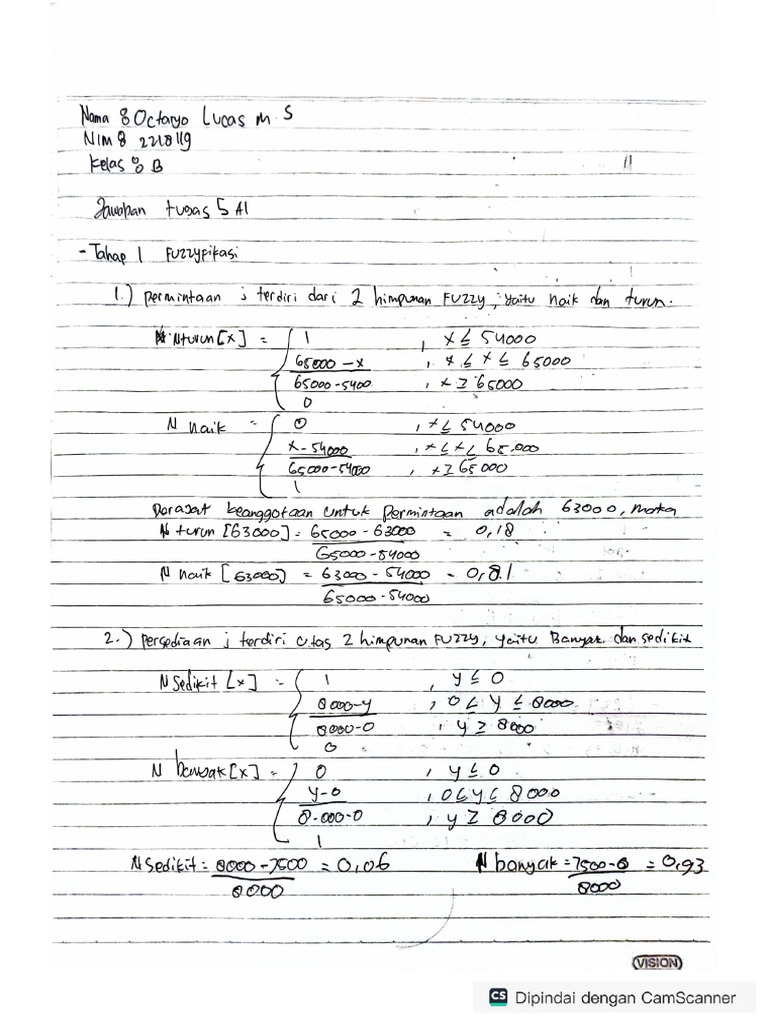 Nama : Octaryo Lucas M. S
NIM : 2218119
Kelas : B
Jawaban tugas 5 AI
- Tahap 1 Fuzzyfikasi
1.) permintaan ; terdiri dari 2 himpunan Fuzzy, yaitu naik dan turun.
N turun [x] = 1 , x ≤ 54000
65000 - x , x ≤ x ≤ 65000
65000 - 5400 , x ≥ 65000
0
N naik = 0 , x ≤ 54000
x - 54000 , x ≤ x ≤ 65.000
65000 - 54000 , x ≥ 65000
1
Derajat keanggotaan untuk permintaan adalah 63000, maka
N turun [63000] = 65000 - 63000 = 0,18
65000 - 54000
N naik [63000] = 63000 - 54000 = 0,81
65000 - 54000
2.) persediaan ; terdiri atas 2 himpunan Fuzzy, yaitu Banyak dan sedikit
N Sedikit [x] = 1 , y ≤ 0
8000 - y , 0 ≤ y ≤ 8000
8000 - 0 , y ≥ 8000
0
N banyak [x] = 0 , y ≤ 0
y - 0 , 0 ≤ y ≤ 8000
8.000 - 0 , y ≥ 8000
1
N Sedikit = 8000 - 7500 = 0,06 N banyak = 7500 - 0 = 0,93
8000 8000
VISION
CS Dipindai dengan CamScanner